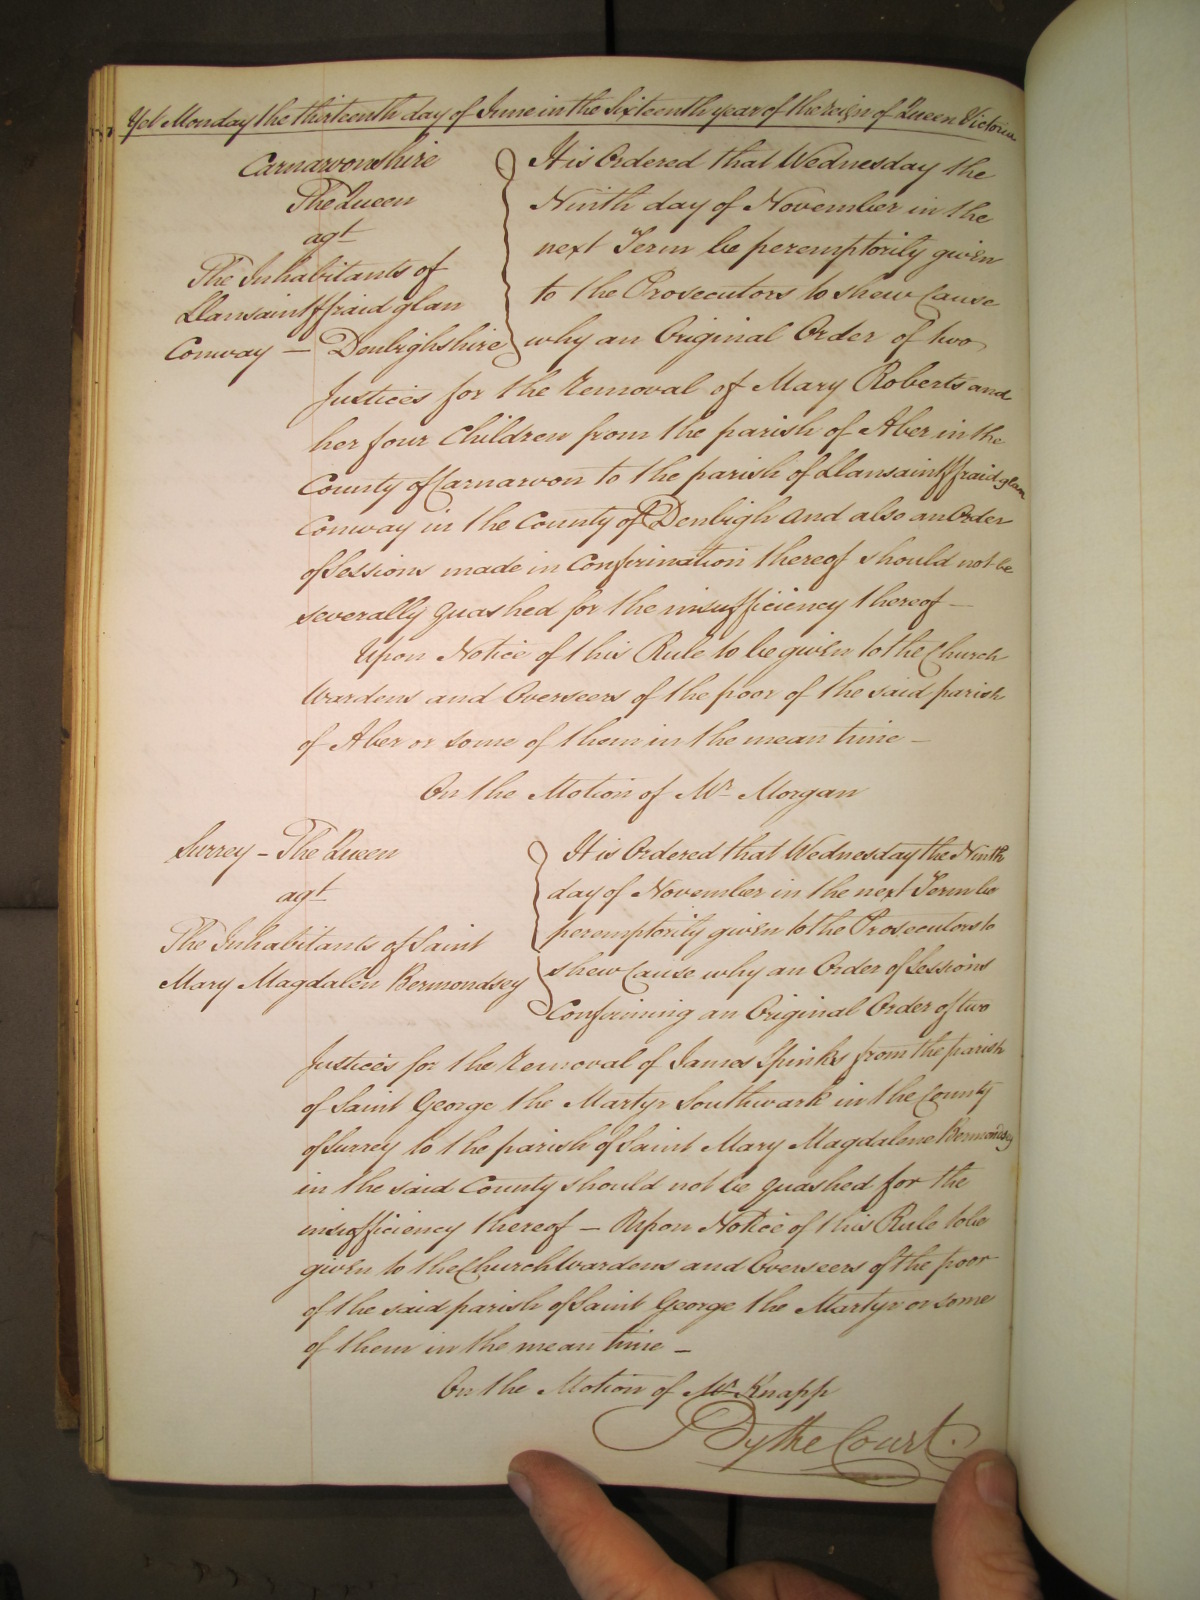 Yet Monday the thirteenth day of June in the Sixteenth year of the reign of Queen Victoria
Carnarvonshire
The Queen
agt
The Inhabitants of
Llansaintffraid glan
Conway — Denbighshire
It is Ordered that Wednesday the
Ninth day of November in the
next Term be peremptorily given
to the Prosecutors to shew Cause
why an Original Order of two
Justices for the Removal of Mary Roberts and
her four Children from the parish of Aber in the
County of Carnarvon to the parish of Llansaintffraid glan
Conway in the County of Denbigh and also an Order
of Sessions made in Confirmation thereof should not be
severally quashed for the insufficiency thereof —
Upon Notice of this Rule to be given to the Church
wardens and Overseers of the poor of the said parish
of Aber or some of them in the mean time —
On the Motion of Mr Morgan
Surrey – The Queen
agt
The Inhabitants of Saint
Mary Magdalen Bermondsey
It is Ordered that Wednesday the Ninth
day of November in the next Term be
peremptorily given to the Prosecutors to
shew Cause why an Order of Sessions
Confirming an Original Order of two
Justices for the Removal of James Spinks from the parish
of Saint George the Martyr Southwark in the County
of Surrey to the parish of Saint Mary Magdalene Bermondsey
in the said County should not be quashed for the
insufficiency thereof — Upon Notice of this Rule to be
given to the Church Wardens and Overseers of the poor
of the said parish of Saint George the Martyr or some
of them in the mean time —
On the Motion of Mr Knapp
By the Court.